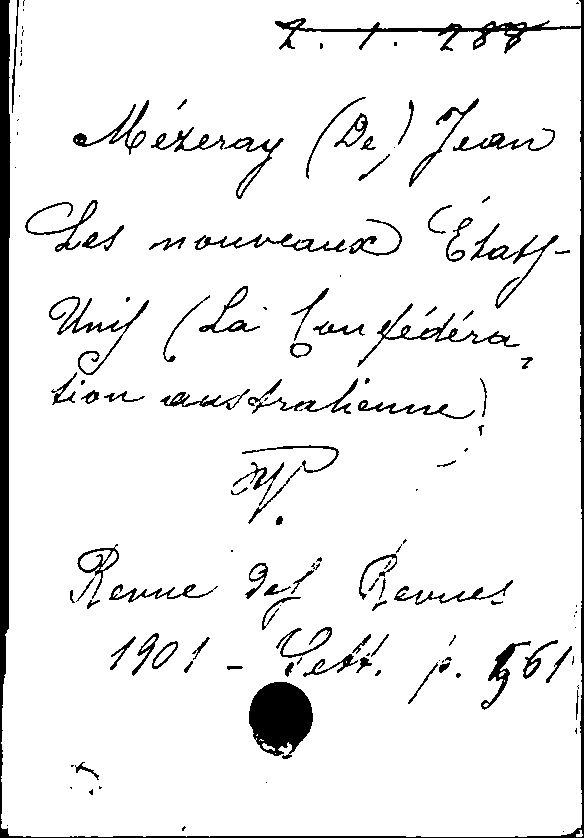 2. 1. 288
Mézeray (De) Jean
Les nouveaux États-
Unis (La Confédéra,
tion australienne)
Revue des Revues
1901 - Sett. p. 561